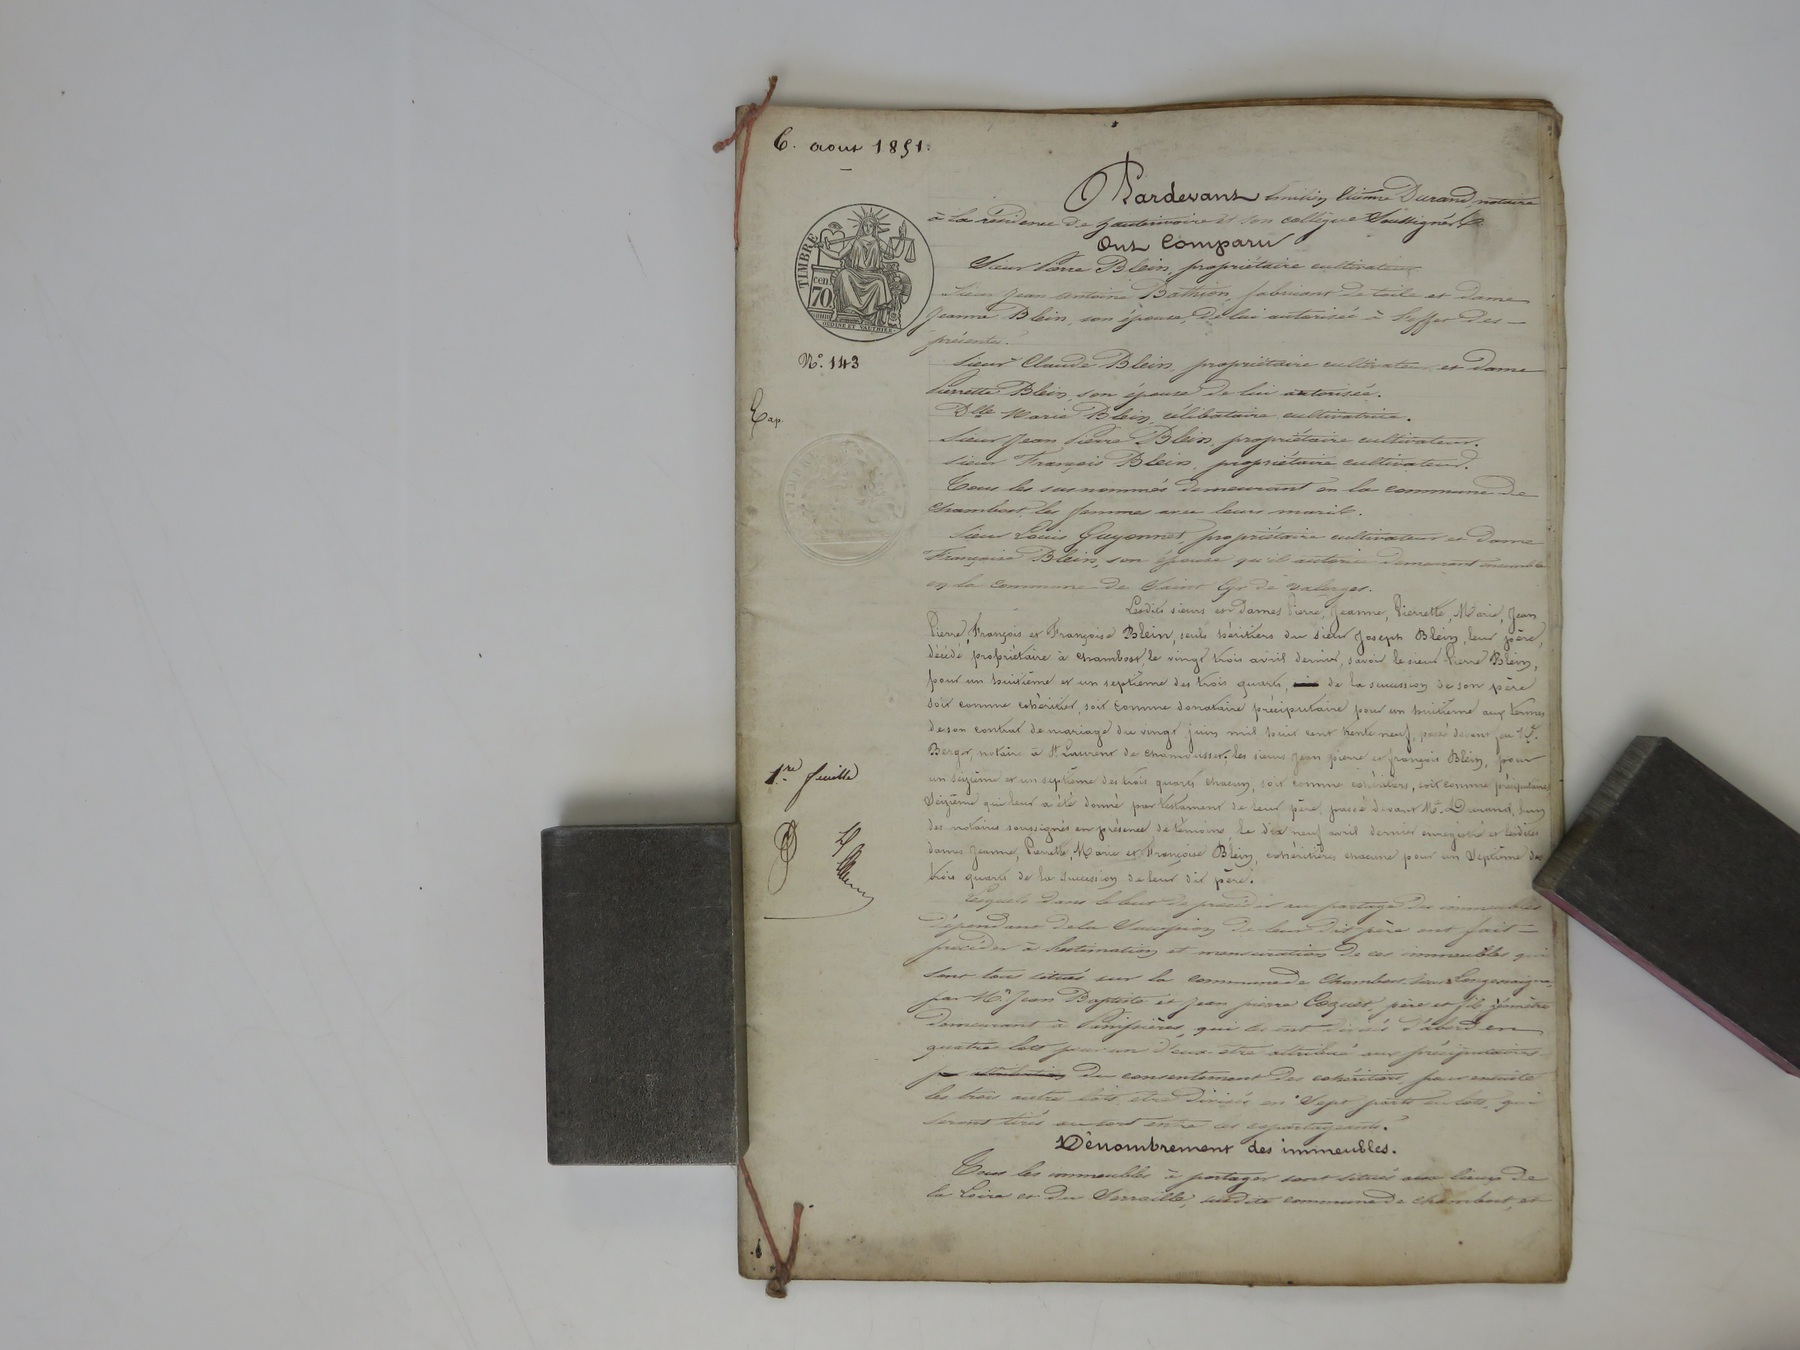 6. aout 1851.
Pardevant Emilien Etienne Durand, notaire
à la résidence de hauterivoire et son collègue Soussignés
Ont Comparu
Sieur Pierre Blein, propriétaire cultivateur
Sieur Jean antoine Bathion, fabricant de toile et Dame
Jeanne Blein, son épouse, de lui autorisée à l'effet des
présentes.
TIMBRE
cen
70
N°. 143
Sieur Claude Blein, propriétaire cultivateur et Dame
Pierrette Blein, son épouse de lui autorisée.
Exp.
Dlle Marie Blein, célibataire cultivatrice.
Sieur Jean Pierre Blein, propriétaire cultivateur.
Sieur François Blein, propriétaire cultivateur.
Tous les susnommés demeurant en la commune de
Chambost les femmes avec leurs maris.
Sieur Louis Guyonnet, propriétaire cultivateur et Dame
Françoise Blein, son épouse qu'il autorise demeurant ensemble
en la Commune de Saint Cyr de valorges.
Lesdits sieurs et Dames Pierre, Jeanne, Pierrette, Marie, Jean
Pierre, François et Françoise Blein, seuls héritiers du sieur Joseph Blein, leur père,
décédé propriétaire à chambost, le vingt trois avril dernier, savoir le sieur Pierre Blein,
pour un huitième et un septième des trois quarts, de la succession de son père
soit comme cohéritier, soit comme donataire préciputaire pour un huitième aux termes
de son contrat de mariage du vingt juin mil huit cent trente neuf, passé devant feu Me.
Berger, notaire à St. Laurent de chamousset; les sieurs Jean pierre et françois Blein, pour
un seizième et un septième des trois quarts chacun, soit comme cohéritiers, soit comme préciputaires
Seizième qui leur a été donné par testament de leur père, passé devant Me. Durand, l'un
des notaires soussignés en présence de témoins, le dix neuf avril dernier enregistré et lesdites
dames Jeanne, Pierrette, Marie et Françoise Blein, cohéritières chacune pour un septième des
trois quarts de la succession de leur dit père.
1re feuille
Lesquels dans le but de procéder au partage des immeubles
dépendant de la Succession de leur dit père ont fait
procéder à l'estimation et mensuration de ces immeubles qui
sont tous situés sur la commune de Chambost sous Longessaigne,
par Mrs Jean Baptiste et Jean pierre Coquet, père et fils géomètres
demeurant à Panissières, qui les ont divisés d'abord en
quatre lots pour un d'eux être attribué aux préciputaires
du consentement des cohéritiers pour ensuite
les trois autre lots etre divisés en Sept parts ou lots, qui
seront tirés au sort entre les copartageants.
Dénombrement des immeubles.
Tous les immeubles à partager sont situés aux lieux de
la Loire et du Serraille, susdite commune de chambost, et